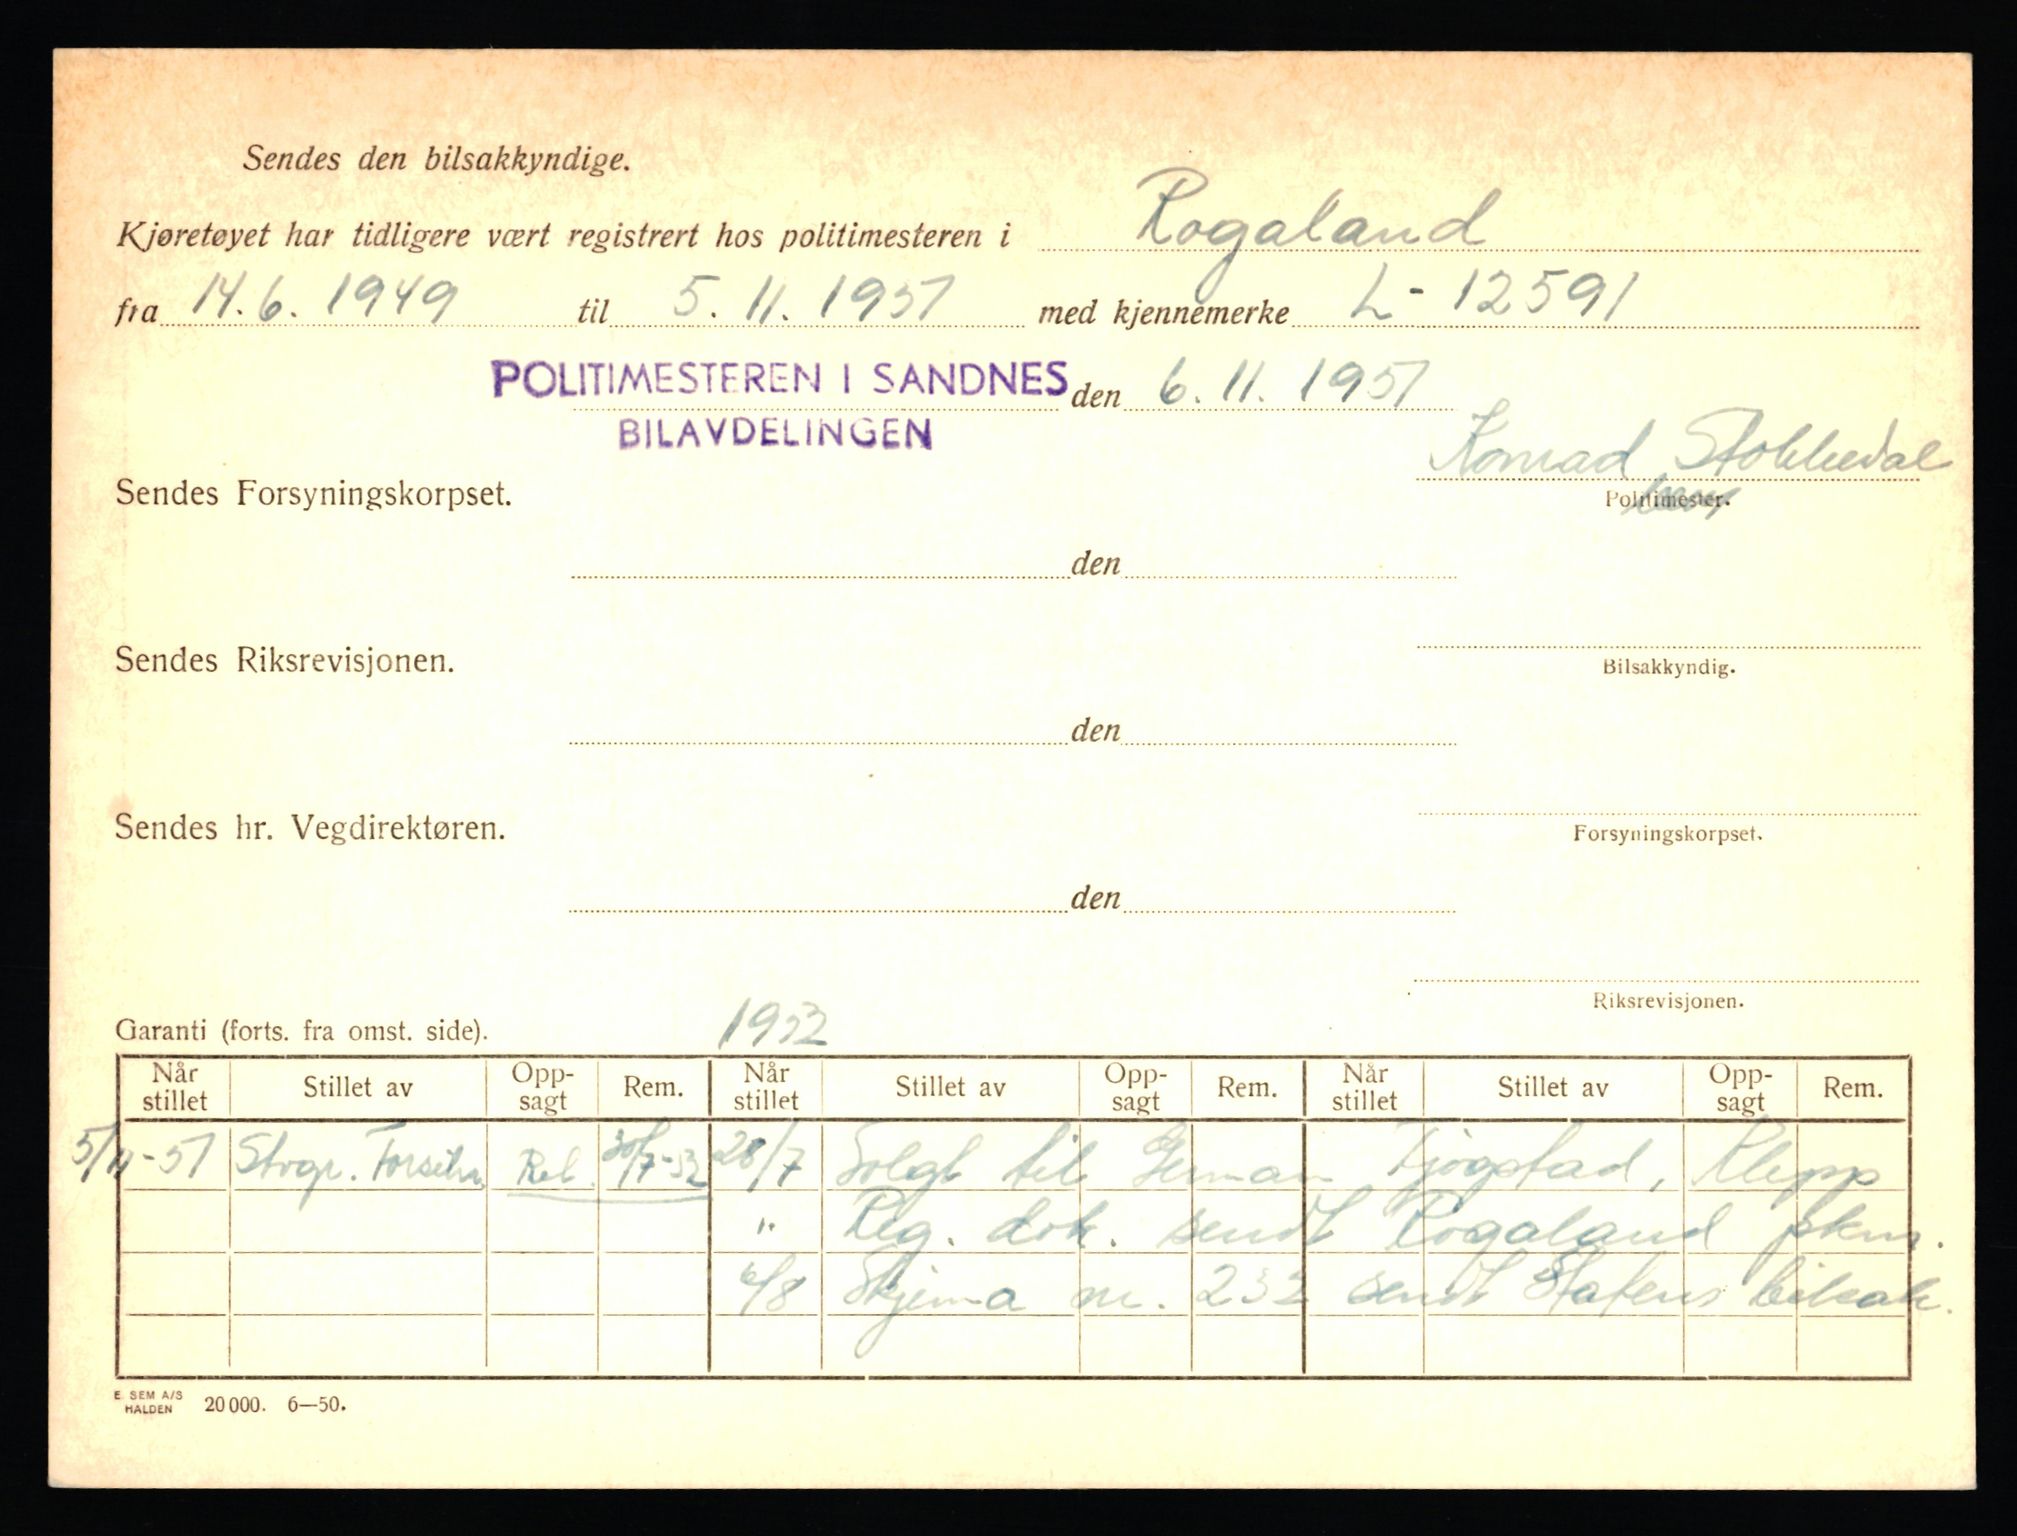 Sendes den bilsakkyndige.
Kjøretøyet har tidligere vært registrert hos politimesteren i Rogaland
fra 14.6.1949 til 5.11.1951 med kjennemerke L-12591
POLITIMESTEREN I SANDNES den 6.11.1951
BILAVDELINGEN
Konrad Stokkedal
Sendes Forsyningskorpset. Politimester.
den
Sendes Riksrevisjonen.
Bilsakkyndig.
den
Sendes hr. Vegdirektøren.
Forsyningskorpset.
den
Riksrevisjonen.
Garanti (forts. fra omst. side). 1952
Når stillet Stillet av Opp-sagt Rem. Når stillet Stillet av Opp-sagt Rem. Når stillet Stillet av Opp-sagt Rem.
5/11-51 Stvgr. Rel. 30/7-52 28/7 Solgt til German Tjøgstad, Klepp
" Reg. dok. sendt Rogaland pkm.
6/8 Skjema nr. 232 sendt Statens bilsak.
E. SEM A/S
HALDEN 20000. 6—50.